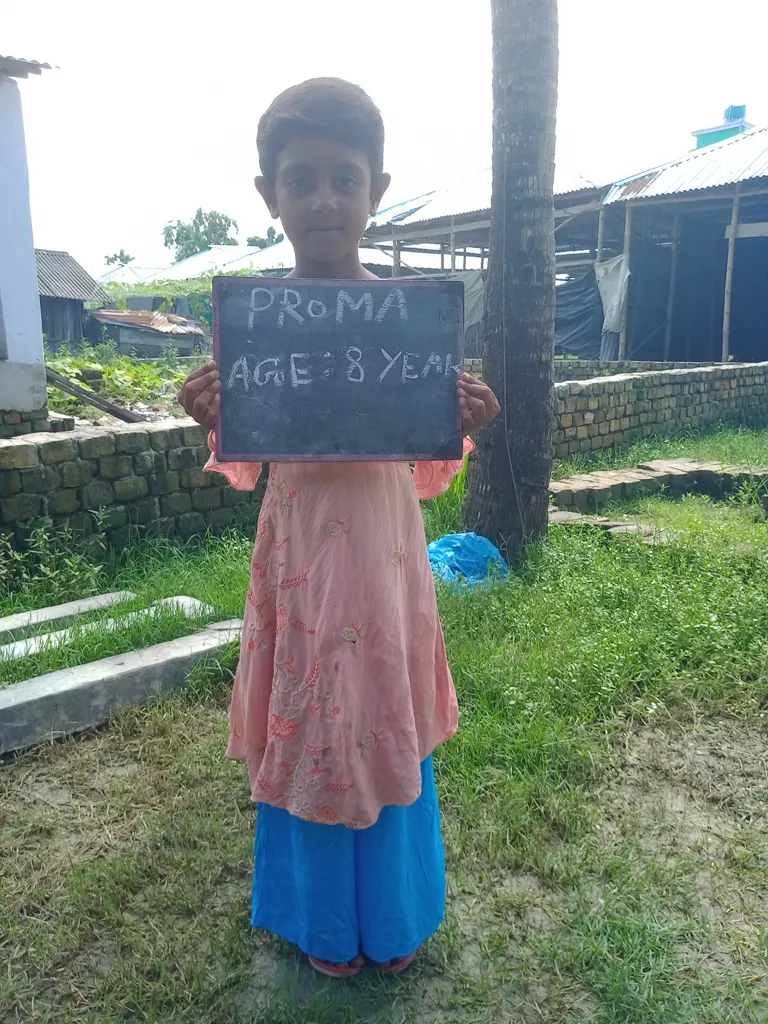 PROMA
AGE: 8 YEAR